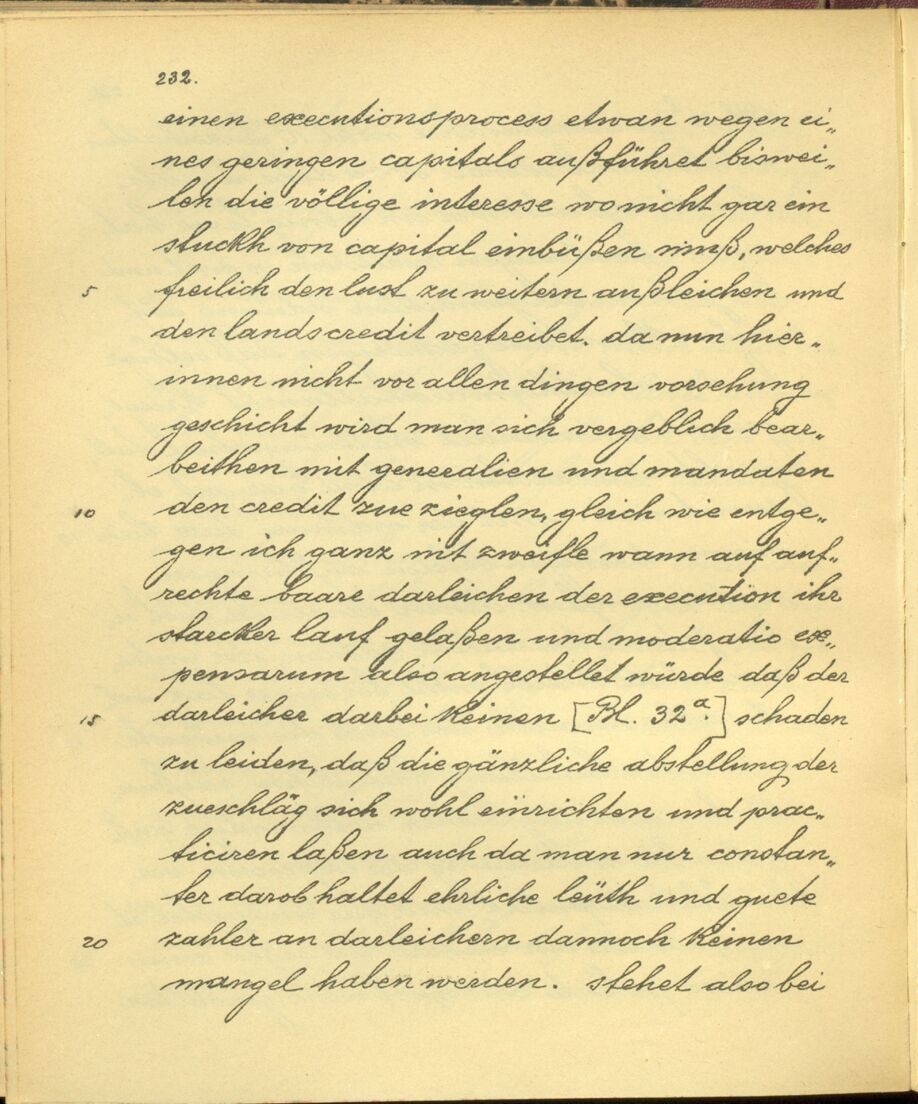 232.
einen executionsprocess etwan wegen ei„
nes geringen capitals außführet biswei„
len die völlige interesse wo nicht gar ein
stuckh von capital einbüßen muß, welches
5 freilich den lust zu weitern außleichen und
den landscredit vertreibet. da nun hier„
innen nicht vor allen dingen vorsehung
geschicht wird man sich vergeblich bear„
beithen mit generalien und mandaten
10 den credit zue zieglen, gleich wie entge„
gen ich ganz nit zweifle wann auf auf„
rechte baare darleichen der execution ihr
starcker lauf gelaßen und moderatio ex„
pensarum also angestellet würde daß der
15 darleicher darbei keinen [Bl. 32ª.] schaden
zu leiden, daß die gänzliche abstellung der
zueschläg sich wohl einrichten und prac„
ticiren laßen auch da man nur constan„
ter darob haltet ehrliche leüth und guete
20 zahler an darleichern dannoch keinen
mangel haben werden. stehet also bei